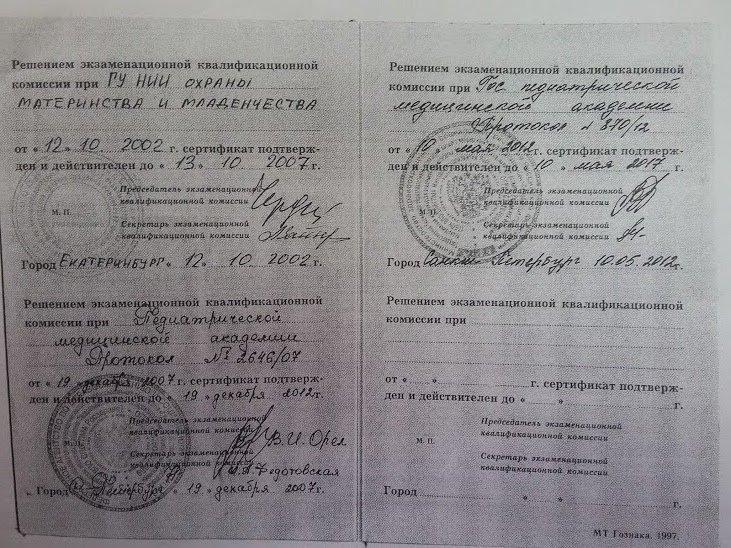 Решением экзаменационной квалификационной
комиссии при ГУ НИИ ОХРАНЫ
МАТЕРИНСТВА И МЛАДЕНЧЕСТВА
от « 12 » 10 2002 г. сертификат подтверж-
ден и действителен до « 13 » 10 2007 г.
Председатель экзаменационной
квалификационной комиссии
М. П.
Секретарь экзаменационной
квалификационной комиссии
Город ЕКАТЕРИНБУРГ « 12 » 10 2002 г.
Решением экзаменационной квалификационной
комиссии при Педиатрической
медицинской академии
Протокол № 2646/07
от « 19 » декабря 2007 г. сертификат подтверж-
ден и действителен до « 19 » декабря 2012 г.
Председатель экзаменационной
квалификационной комиссии
В.И. Орел
М. П.
Секретарь экзаменационной
квалификационной комиссии
Федотовская
Город С-Петербург « 19 » декабря 2007 г.
Решением экзаменационной квалификационной
комиссии при Гос педиатрической
медицинской академии
Протокол № 870/12
от « 10 » мая 2012 г. сертификат подтверж-
ден и действителен до « 10 » мая 2017 г.
Председатель экзаменационной
квалификационной комиссии
М. П.
Секретарь экзаменационной
квалификационной комиссии
Город Санкт Петербург 10.05.2012 г.
Решением экзаменационной квалификационной
комиссии при
от « » г. сертификат подтверж-
ден и действителен до « » г.
Председатель экзаменационной
квалификационной комиссии
М. П.
Секретарь экзаменационной
квалификационной комиссии
Город « » г.
МТ Гознака. 1997.